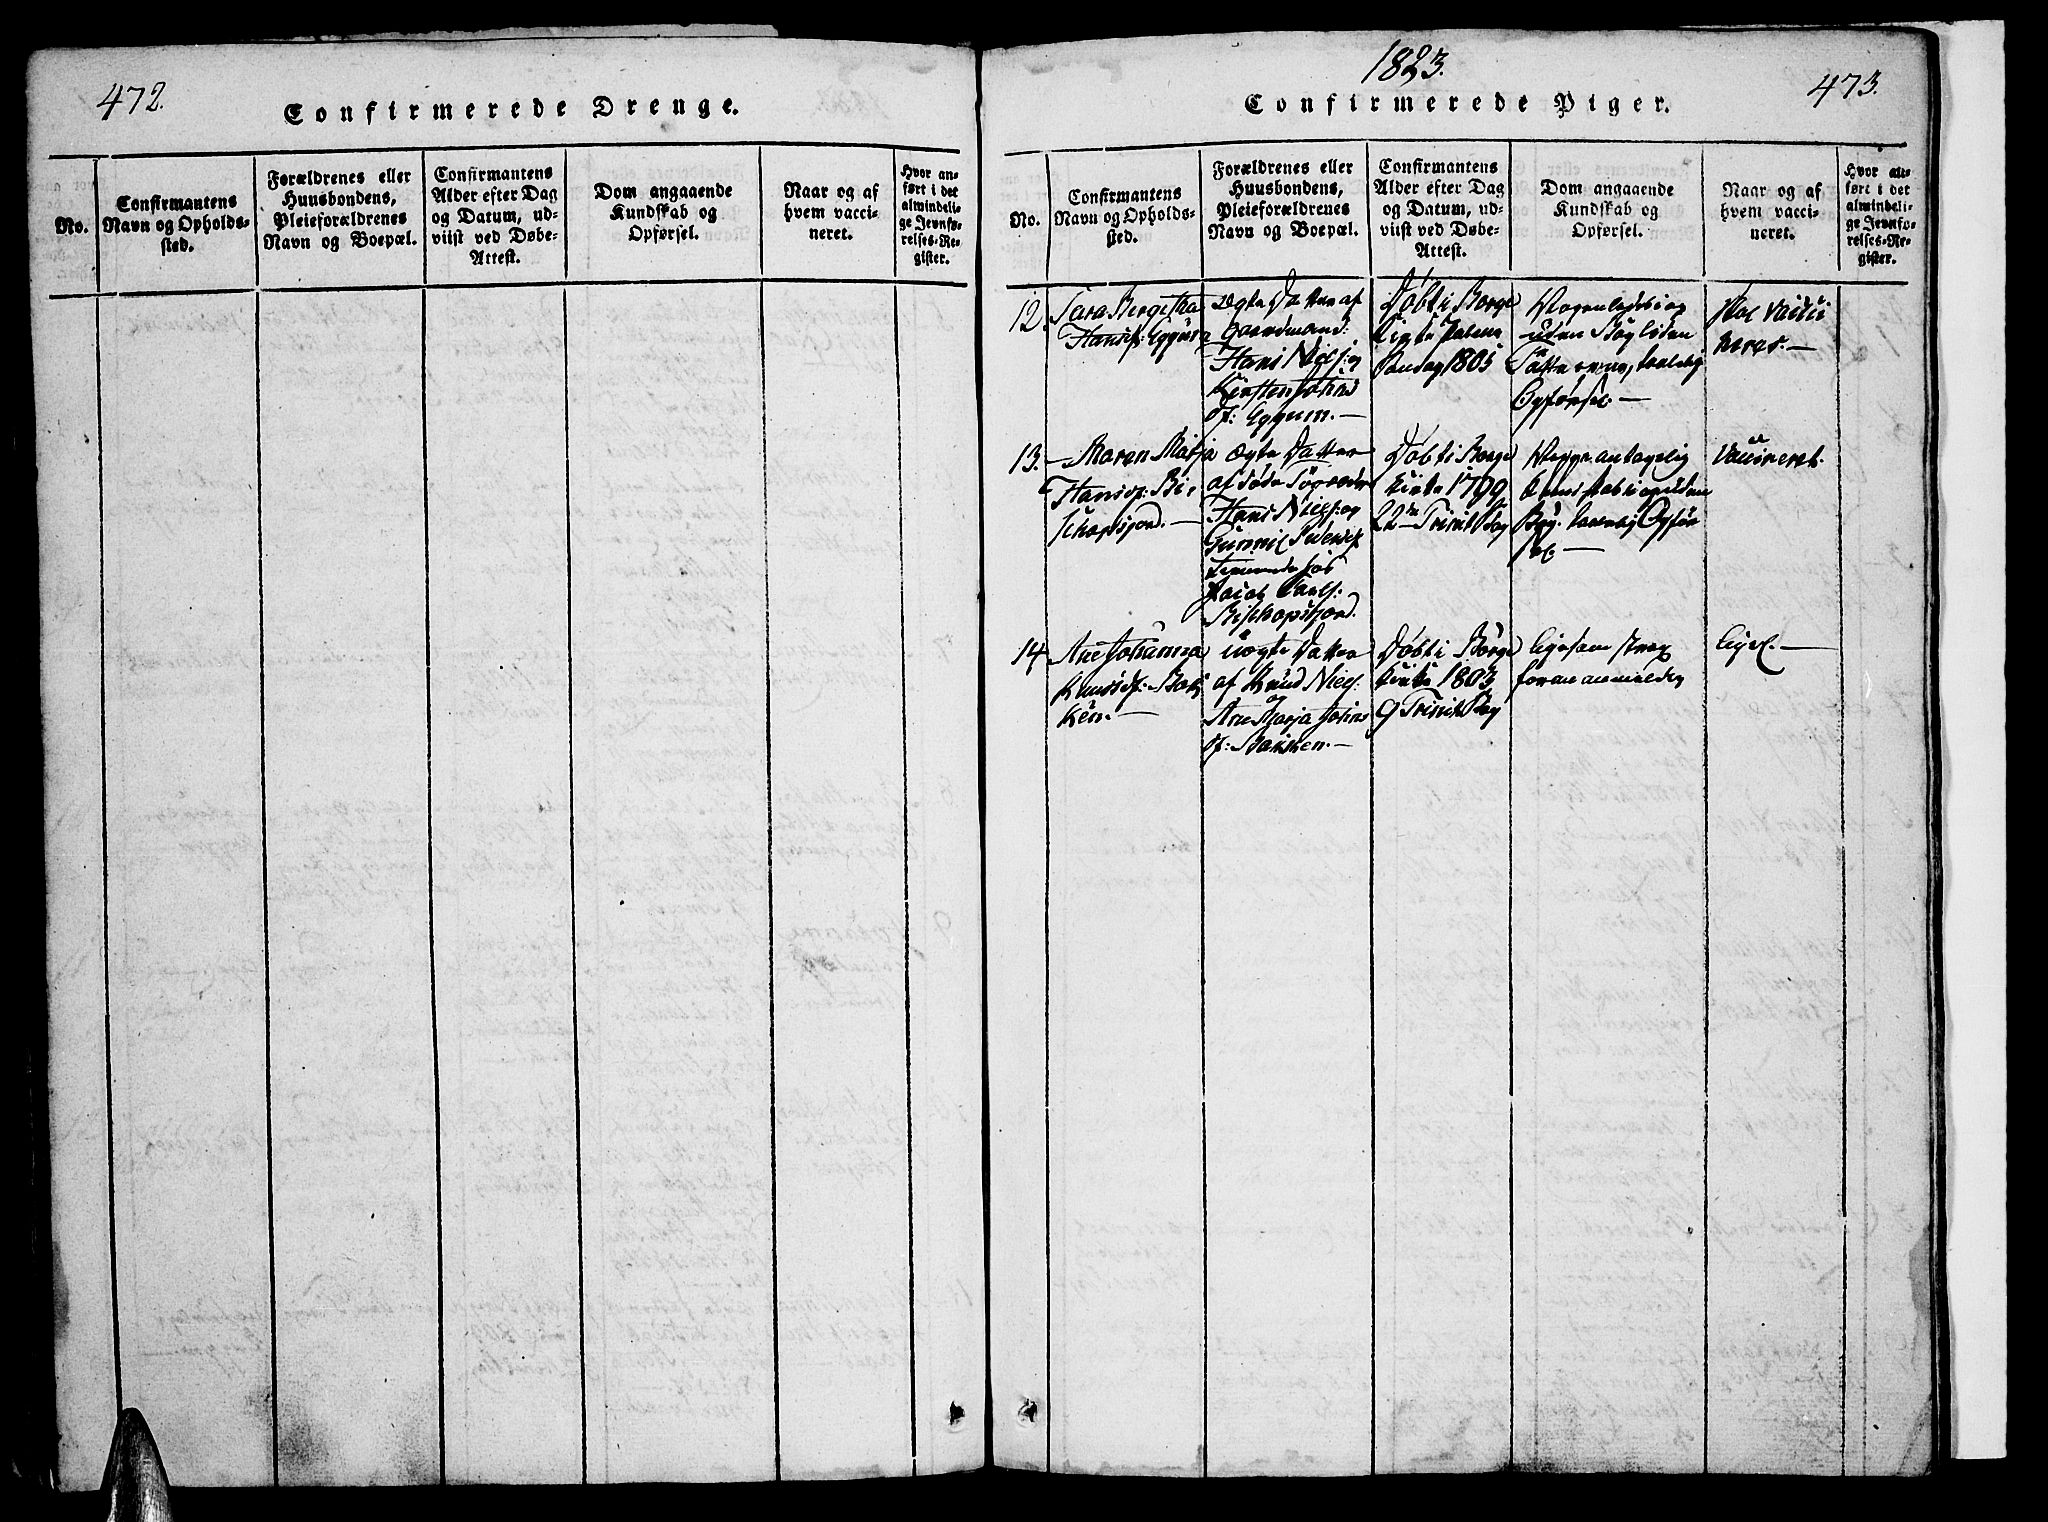 472.
Confirmerede Drenge.
No.
Confirmantens
Navn og Opholds-
sted.
Forældrenes eller
Huusbondens,
Pleieforældrenes
Navn og Boepæl.
Confirmantens
Alder efter Dag
og Datum, ud-
viist ved Døbe-
Attest.
Dom angaaende
Kundskab og
Opførsel.
Naar og af
hvem vacci-
neret.
Hvor an-
ført i det
almindeli-
ge Jevnfø-
relses-Re-
gister.
1823.
473.
Confirmerede Piger.
No.
Confirmantens
Navn og Opholds-
sted.
Forældrenes eller
Huusbondens,
Pleieforældrenes
Navn og Boepæl.
Confirmantens
Alder efter Dag
og Datum, ud-
viist ved Døbe-
Attest.
Dom angaaende
Kundskab og
Opførsel.
Naar og af
hvem vacci-
neret.
Hvor an-
ført i det
almindeli-
ge Jevnfø-
relses-Re-
gister.
12.
Sara Bergitha
Hansd: Eggum
Ægte Datter af
Gaardmand:
Hans Niels: og
Kirsten Johns
d: Eggum. —
Døbt i Borge
Kirke Palme
Søndag 1805
uden Bog liden
Opførsel —
vacci
neret. —
13.
— Maren Marja
Hansd: Bi-
schopsjord. —
Ægte Datter
af
Hans Niels: og
Gunnil Pedersd
Jacob Carls:
Bischopsjord.
Døbt i Borge
Kirke 1799
22 Trinit Dag
antagelig
Bog. Opfør
sel —
Vaccineret.
14
Ane Johanna
Knudsd: Bak
ken. —
uægte Datter
af Knud Niels:
Ane Marja Johns
d: Bakken. —
Døbt i Borge
Kirke 1803
9 Trinit Dag
ligesom strax
foran anmeldes
ligel. —